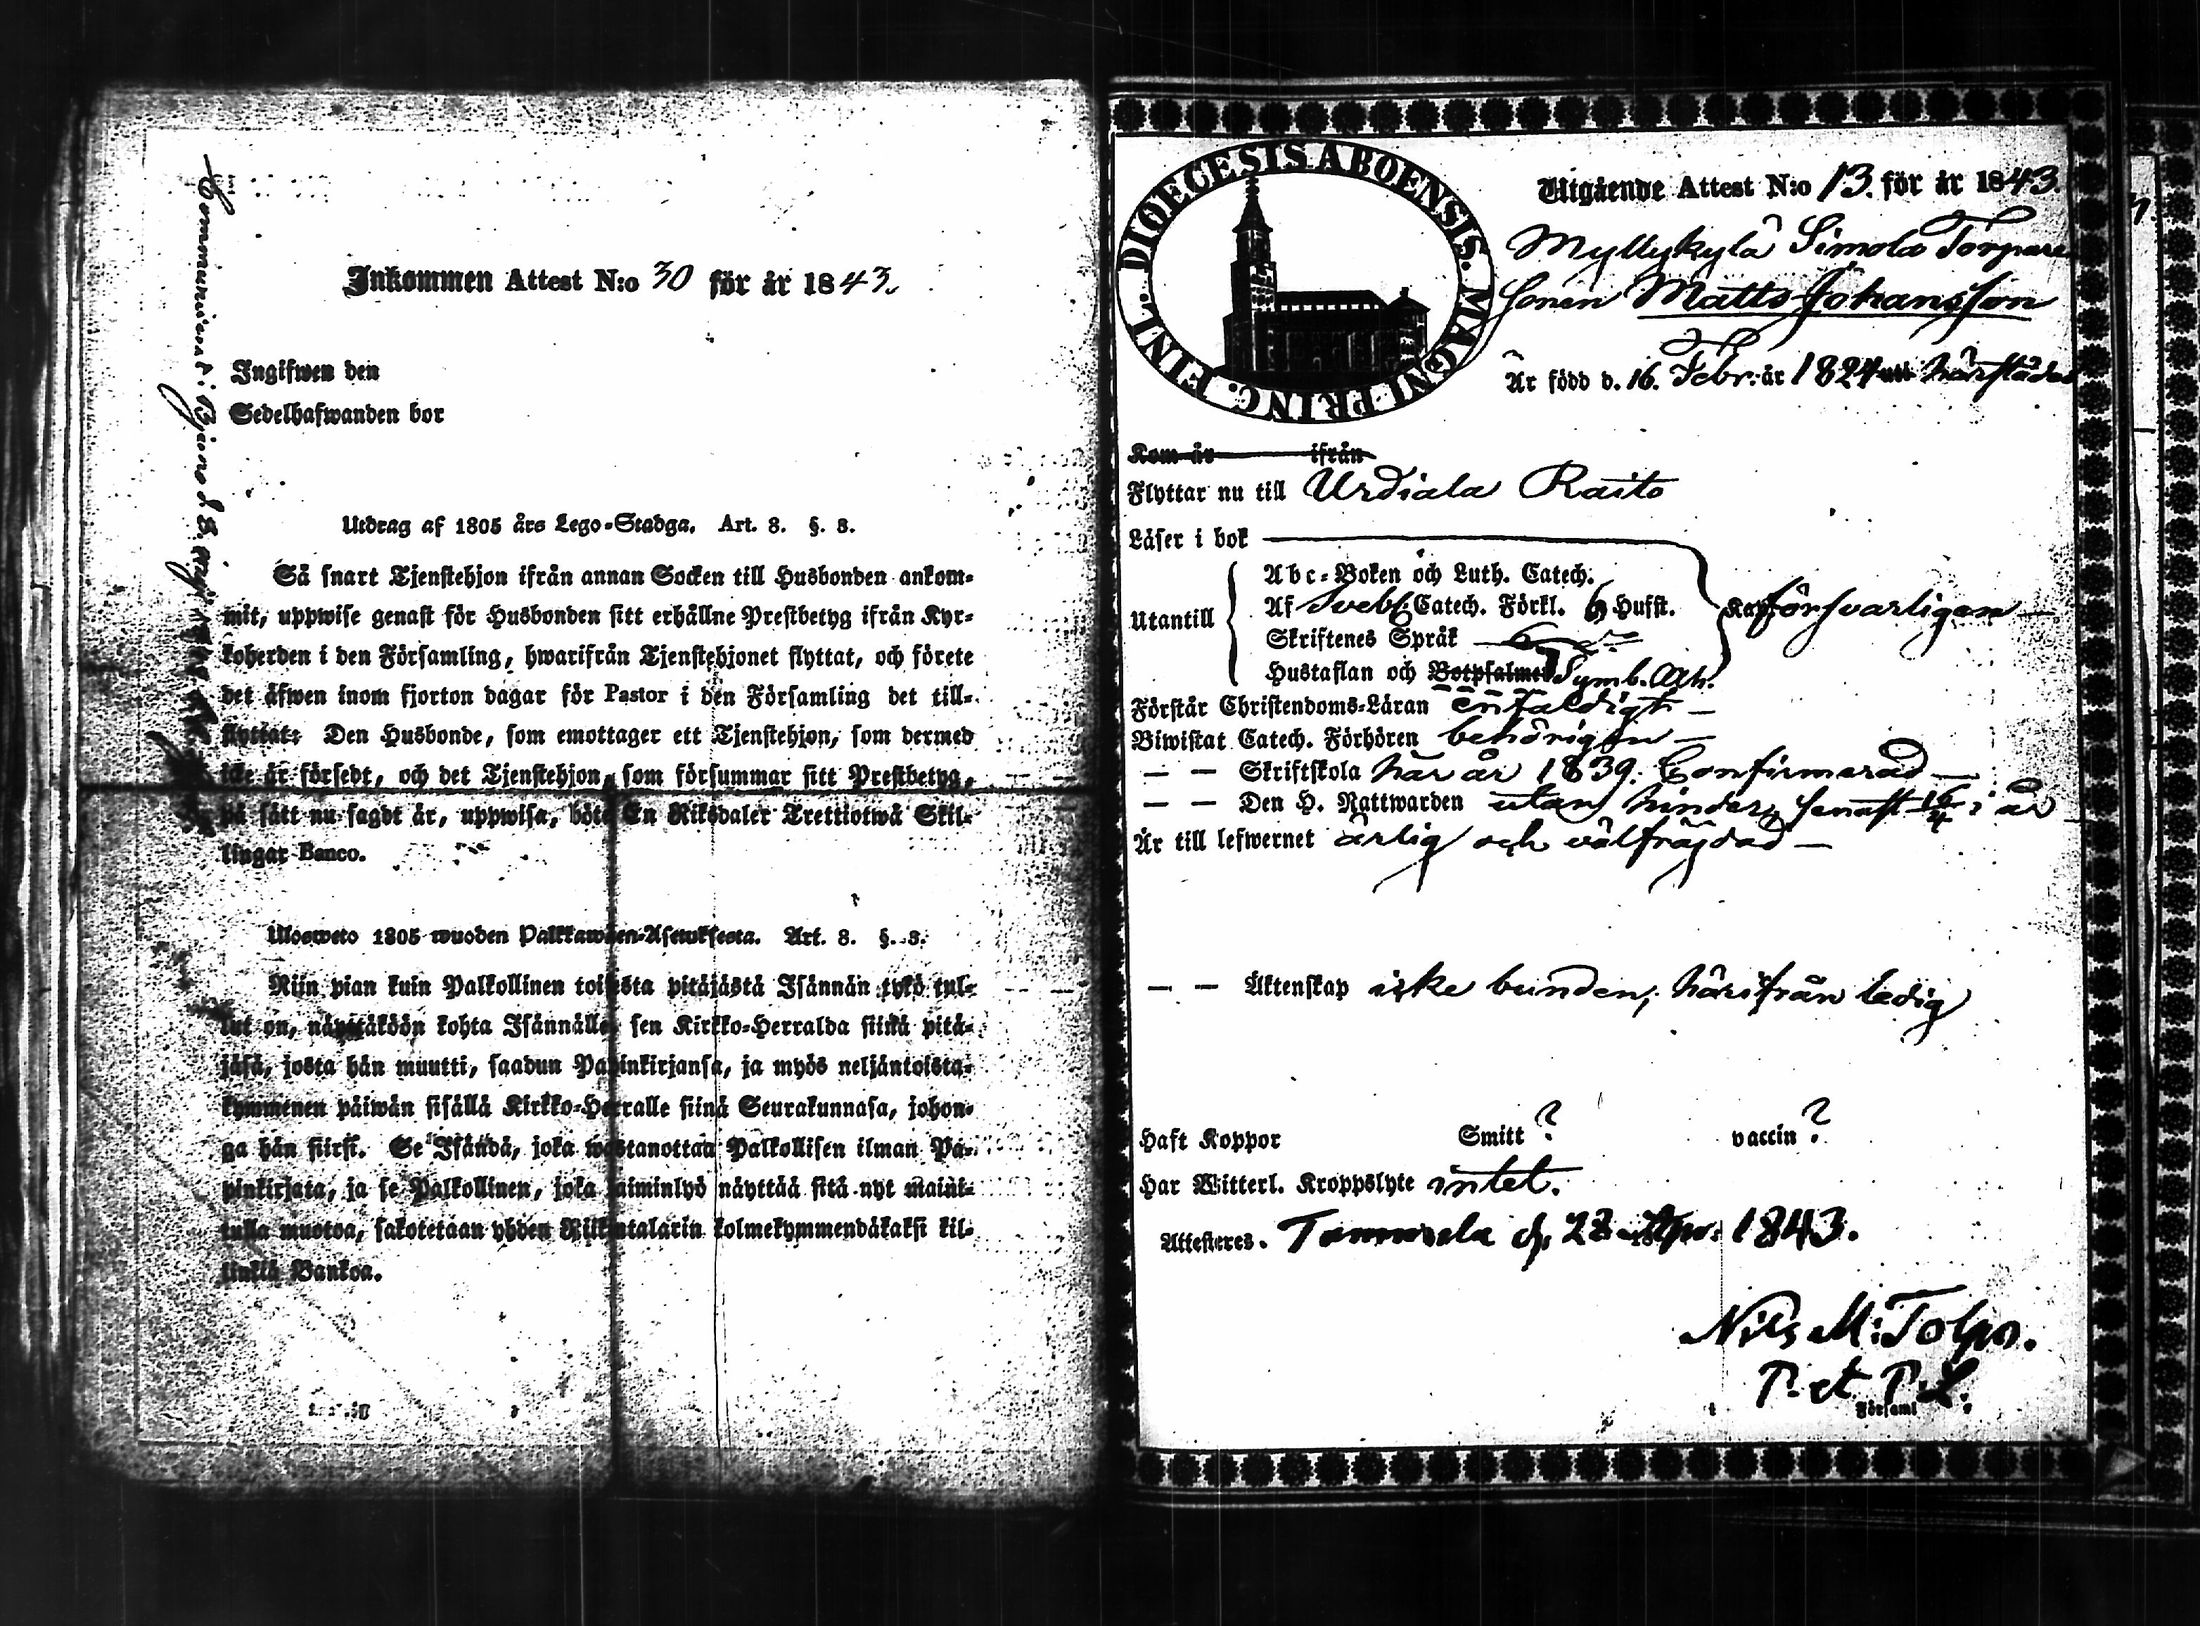 Inkommen Attest N:o 30 för år 1843.
Ingifwen den
Sedelhafwanden bor
Utdrag af 1805 års Lego-Stadga. Art. 8. §. 8.
Så snart Tjenstehjon ifrån annan Socken till Husbonden ankom-
mit, uppwise genast för Husbonden sitt erhållne Prestbetyg ifrån Kyr-
koherden i den Församling, hwarifrån Tjenstehjonet flyttat, och förete
det äfwen inom fjorton dagar för Pastor i den Församling det till-
flyttat: Den Husbonde, som emottager ett Tjenstehjon, som dermed
icke är försedt, och det Tjenstehjon, som försummar sitt Prestbetyg,
på sätt nu sagdt är, uppwisa, böte En Riksdaler Trettiotwå Skil-
lingar Banco.
Ulosweto 1805 wuoden Palkkawäen-Asetuksesta. Art. 8. §. 8.
Niin pian kuin Palkollinen toisesta pitäjästä Isännän tykö tul-
lut on, näyttäköön kohta Isännälle sen Kirkko-Herralda siinä pitä-
jäsä, josta hän muutti, saadun Papinkirjansa, ja myös neljäntoista-
kymmenen päiwän sisällä Kirkko-Herralle siinä Seurakunnasa, johon-
ga hän siirsi. Se Isändä, joka wastanottaa Palkollisen ilman Pa-
pinkirjata, ja se Palkollinen, joka laiminlyö näyttää sitä nyt maini-
tulla muotoa, sakotetaan yhden Riikintalarin kolmekymmendäkaksi kil-
linkiä Bankoa.
DIOECESIS ABOENSIS. MAGNI PRINC. FINL.
Utgående Attest N:o 13. för år 1843.
Myllykylä Simola Torpare
Sonen Matts Johansson
Är född d. 16. Febr. år 1824 härstädes
Kom år ifrån
Flyttar nu till Urdiala Raito
Läser i bok
Utantill
Abc-Boken och Luth. Catech.
Af Svebil. Catech. Förkl. 6 Hufst.
Skriftenes Språk
Hustaflan och Botpsalmer Symb. Ath.
försvarligen
Förstår Christendoms-Läran enfaldigt
Biwistat Catech. Förhören behörigen
— — Skriftskola här år 1839. Confirmerad
— — Den H. Nattwarden utan hinder, senast 16/4 i år
Är till lefwernet ärlig och välfräjdad
— — Äktenskap icke bunden, härifrån ledig
Haft Koppor Smitt? vaccin?
Har Witterl. Kroppslyte intet.
Attesteres. Tammela d. 28 Apr. 1843.
Nils M: Tolpo.
P. et P. L.
Församl